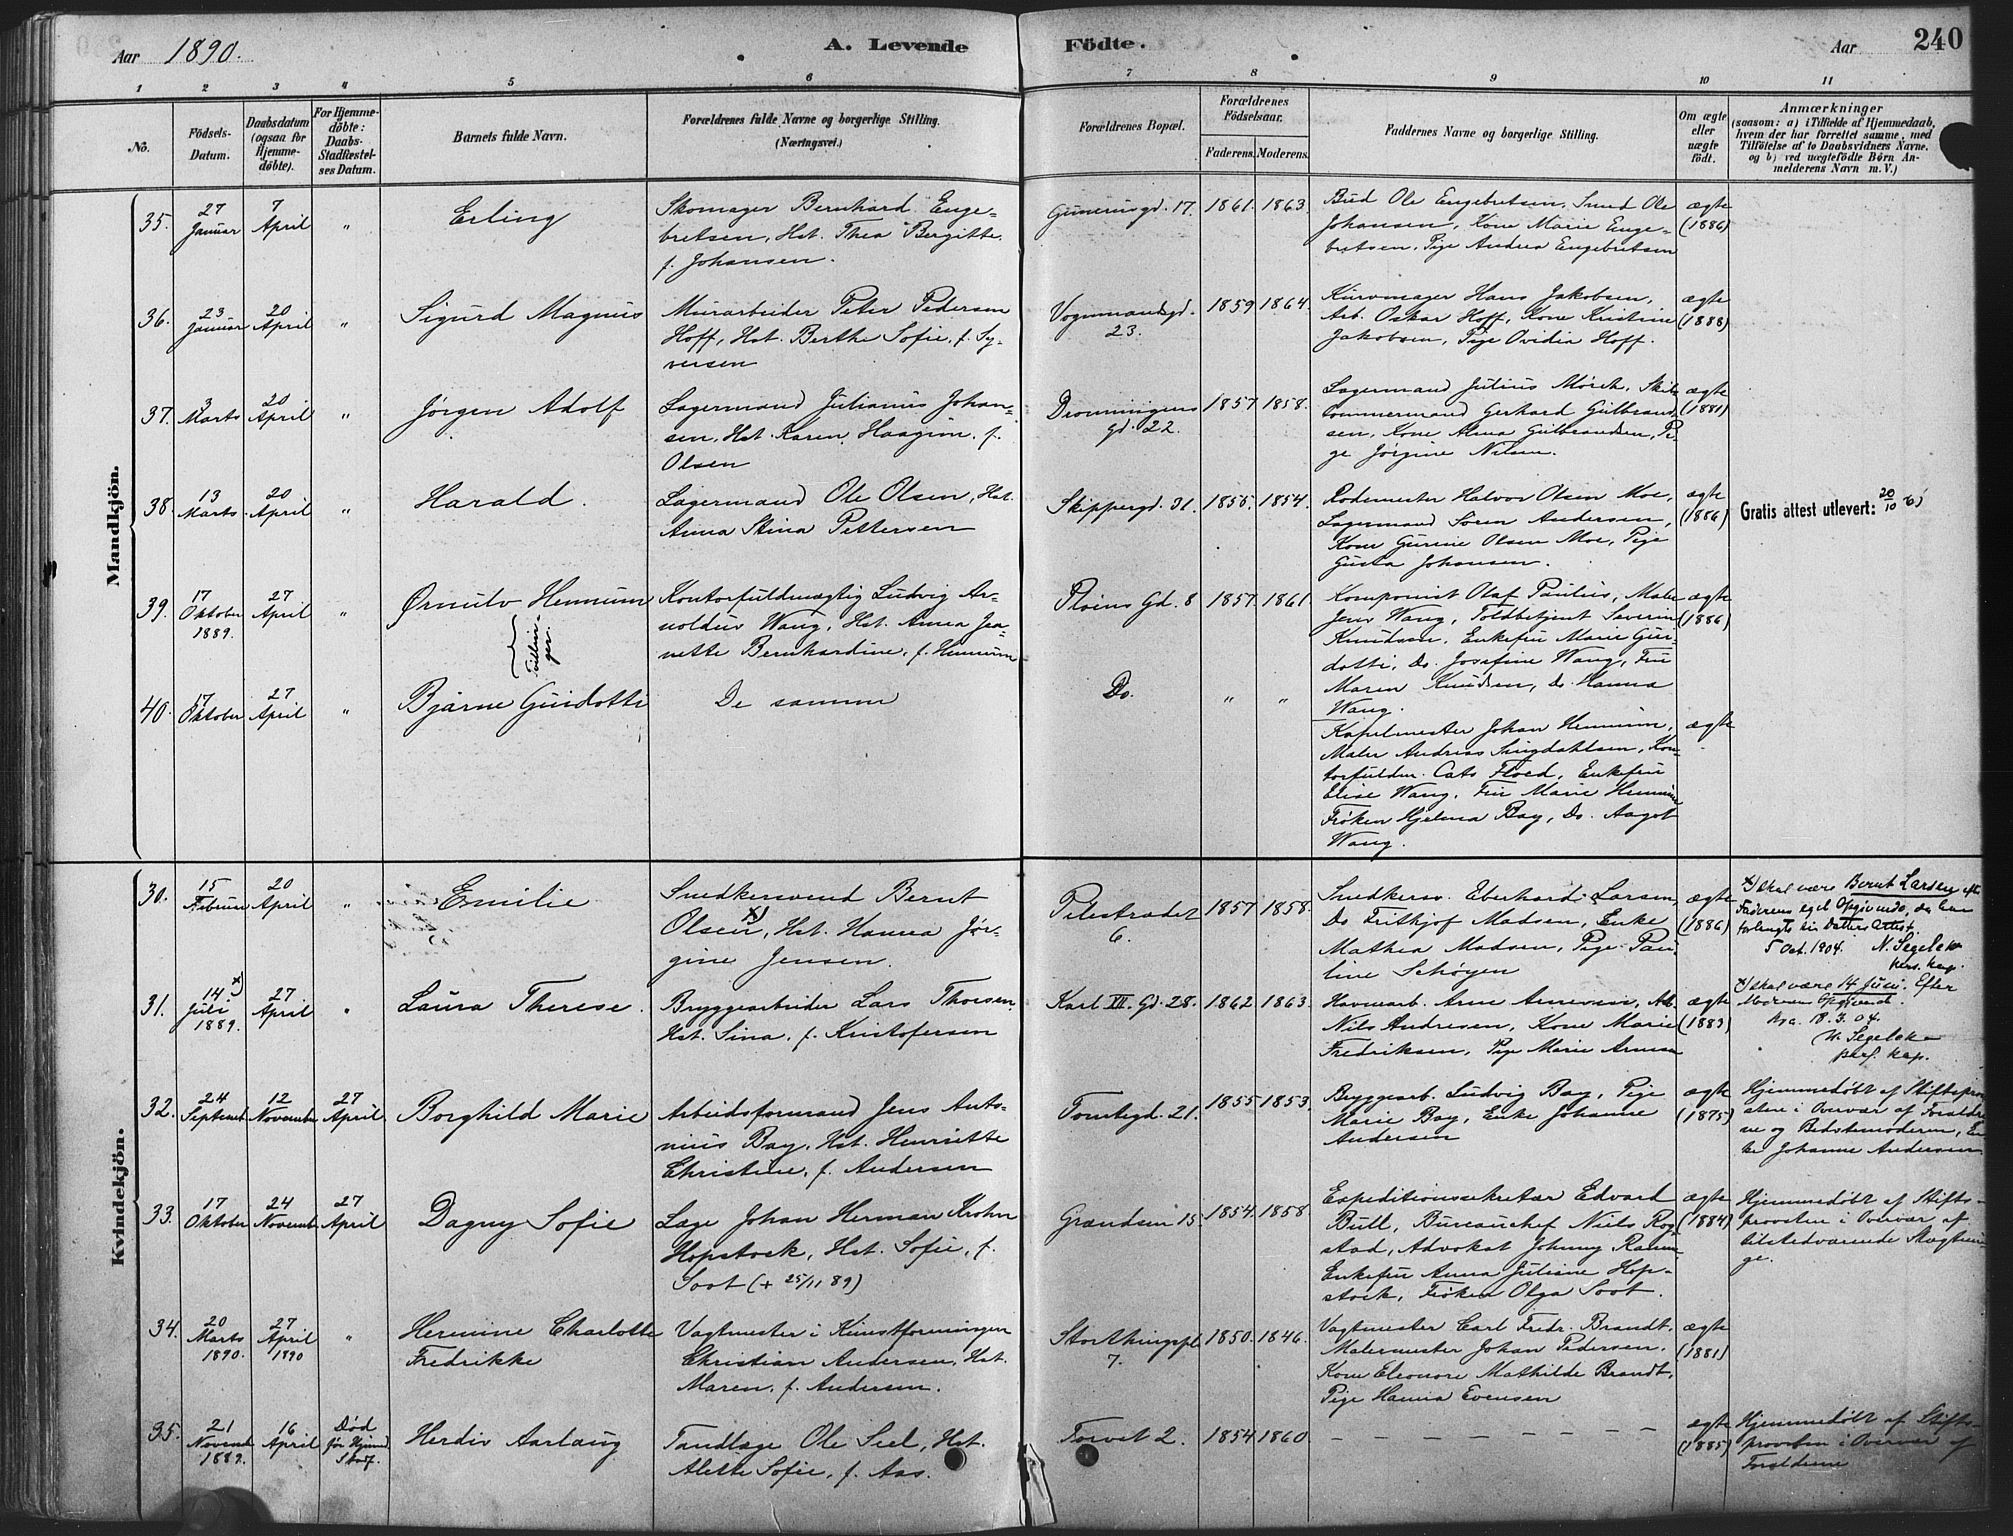 Aar 1890.
A. Levende Födte.
Aar
240
1 2 3 4 5 6 7 8 9 10 11
No.
Födsels-Datum.
Daabsdatum (ogsaa for Hjemme-døbte).
For Hjemme-døbte: Daabs-Stadfæstel-ses Datum.
Barnets fulde Navn.
Forældrenes fulde Navne og borgerlige Stilling. (Næringsvei.)
Forældrenes Bopæl.
Forældrenes Födselsaar.
Faderens. Moderens.
Faddernes Navne og borgerlige Stilling.
Om ægte eller uægte født.
Anmærkninger
(saasom: a) i Tilfælde af Hjemmedaab, hvem der har forrettet samme, med Tilföielse af to Daabsvidners Navne. og b) ved uægtefödte Börn An-melderens Navn m. V.)
Mandkjön.
35. 27 Januar 7 April " Erling
Skomager Bernhard Enge-
bretsen, Hst. Thea Bergitte,
f. Johansen.
Gunerusgd. 17. 1861. 1863.
Bud Ole Engebretsen, Smed Ole
Johansen, Kone Marie Enge-
bretsen, Pige Andrea Engebretsen
ægte (1886)
36. 23 Januar 20 April " Sigurd Magnus
Murarbeider Peter Pedersen
Hoff, Hst. Berthe Sofie, f. Sy-
versen
Vognmandsgd. 23. 1859 1864.
Kurvmager Hans Jakobsen,
Arb. Oskar Hoff, Kone Kristine
Jakobsen, Pige Ovidia Hoff.
ægte (1888)
37. 3 Marts 20 April " Jørgen Adolf
Lagermand Julianus Johan-
sen, Hst. Karen Haagine, f.
Olsen
Dronningens gd. 22. 1857 1858.
Lagermand Julius Mörch, Skibs
tømmermand Gerhard Gulbrand-
sen, Kone Alma Gulbrandsen, Pi-
ge Jørgine Nilsen.
ægte (1881)
38. 13 Marts 20 April " Harald.
Lagermand Ole Olsen, Hst.
Anna Stina Pettersen
Skippergd. 31. 1856. 1854.
Rodemester Halvor Olsen Moe,
Lagermand Søren Andersen,
Kone Gurine Olsen Moe, Pige
Gusta Johansen.
ægte (1886)
Gratis attest utlevert: 20/10
39. 17 Oktober 1889. 27 April " Ørnulv Hennum
Kontorfuldmægtig Ludvig Ar-
noldus Wang, Hst. Anna Jea-
nette Bernhardine, f. Hennum
Pløens Gd. 8 1857. 1861
Komponist Olaf Paulus, Maler
Jens Wang, Toldbetjent Severin
Knudsen, Enkefru Marie Gui-
dotti, Do. Josefine Wang, Fru
Maren Knudsen, Do. Hanna
Wang.
ægte (1886)
Tvillinger.
40. 17 Oktober 27 April " Bjarne Guidotti
De samme
Do. " "
Kapelmester Johan Hennum,
Maler Andreas Singdahlsen, Kon-
torfuldm. Cato Floed, Enkefru
Elise Wang, Fru Marie Hennum
Frøken Hjelma Bay, Do. Aagot
Wang.
ægte
Kvindekjön.
30. 15 Februar 20 April " Emilie
Snedkersvend Bernt
Olsen x), Hst. Hanna Jør-
gine Jensen.
Pilestrædet 6. 1857 1858.
Snedkersv. Eberhard Larsen,
Do Frithjof Madsen, Enke
Mathea Madsen, Pige Pau-
line Schøyen
ægte (1886)
x) skal være Bernt Larsen efter
Faderens eget Opgivende, da han
forlangte sin Datters Attest.
5 Oct. 1904. N. Segelcke
pers. kap.
31. 14 x) Juli 1889. 27 April " Laura Therese.
Bryggearbeider Lars Thorsen
Hst. Sina, f. Kristofersen
Karl XII. Gd. 28. 1862 1863.
Havnearb. Arne Arnesen, Arb.
Nils Andresen, Kone Marie
Fredriksen, Pige Marie Arnesen
ægte (1883)
x) skal være 14 Juni. Efter
Moderens Opgivende.
Kra. 18.3.04.
N. Segelcke
pers. kap.
32. 24 Septembr. 12 November 27 April. Borghild Marie
Arbeidsformand Jens Anto-
nius Bay, Hst. Henriette
Christine, f. Andersen
Tomtegd. 21. 1855 1853.
Bryggearb. Ludvig Bay, Pige
Marie Bay, Enke Johanne
Andersen
ægte (1875)
Hjemmedøbt af Stiftspro-
vsten i Overvær af Forældre-
ne og Bedstemoderen, En-
ke Johanne Andersen
33. 17 Oktober 24 Novembr. 27 April Dagny Sofie
Læge Johan Herman Krohn
Hopstock, Hst. Sofie, f.
Soot (+ 25/11 89)
Grændsen 15. 1854. 1858
Expeditionssekretær Edvard
Bull, Bureauchef Niels Rog-
stad, Advokat Johnny Ramm
Enkefru Anna Juliane Hop-
stock, Frøken Olga Soot.
ægte (1884)
Hjemmedøbt af Stifts-
provsten i Overvær af
tilstedværende Slægtnin-
ge.
34. 20 Marts 1890. 27 April 1890 " Hermine Charlotte Fredrikke
Vagtmester i Kunstforeningen
Christian Andersen, Hst.
Maren, f. Andersen.
Storthingspl. 7. 1850. 1846.
Vagtmester Carl Fredr. Brandt,
Malermester Johan Pedersen.
Kone Eleonore Mathilde Brandt,
Pige Hanna Evensen
ægte (1881)
35. 21 Novemb. 1889. 16 April Død før Hjemd. Stadf. Herdis Aaslaug
Tandlæge Ole Seel, Hst.
Alette Sofie, f. Aas.
Torvet 2. 1854 1860.
– – – – – – – –
ægte (1885)
Hjemmedøbt af Stifts-
provsten i Overvær af
Forældrene